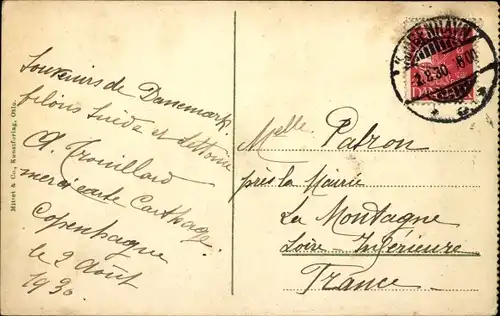 Souvenirs de
Danemark.
filons Suède et Lettonie
A. Trouillard
merci carte Carthage
Copenhague
le 2 Août
1930
Mittet & Co., Kunstforlag, Oslo.
KØBENHAVN
2.8.30
DANMARK
Melle Patron
près la Mairie
La Montagne
Loire-Inférieure
France